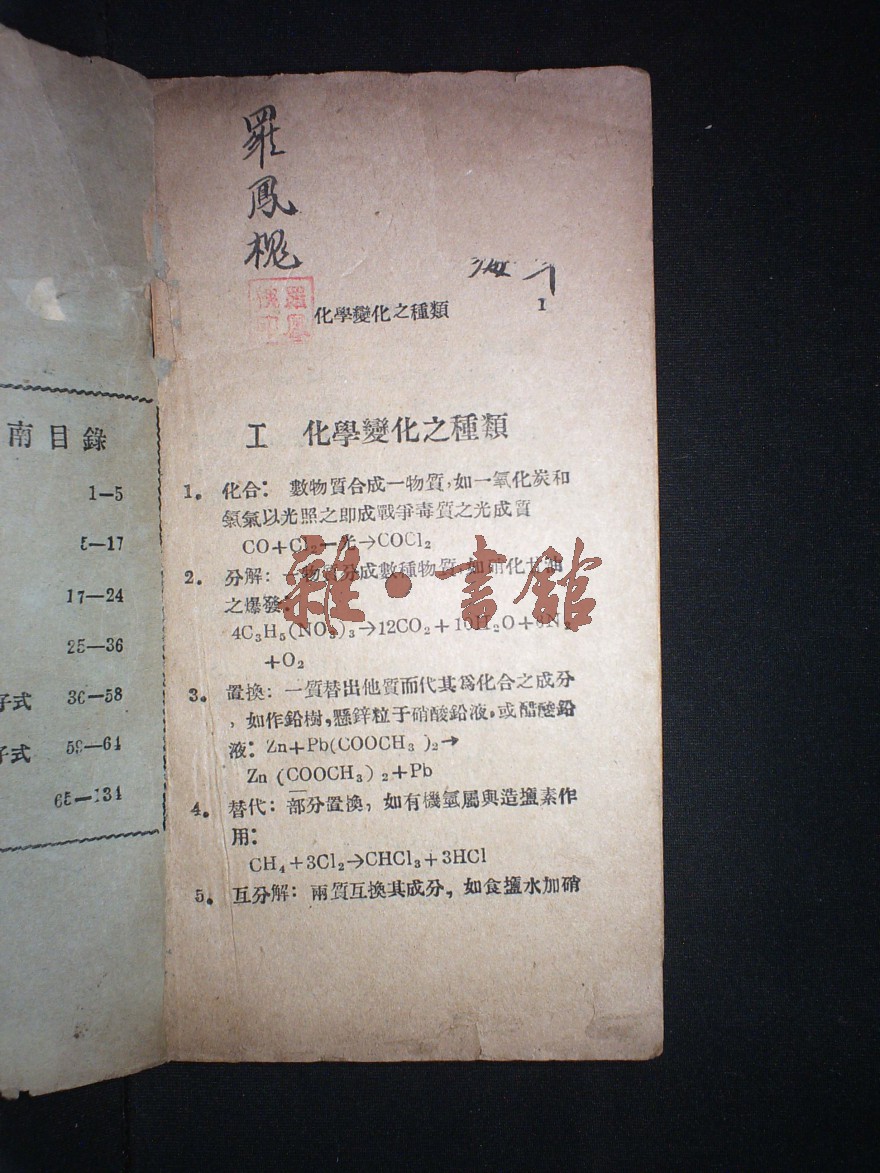 南目錄
1—5
5—17
17—24
25—36
子式 36—58
子式 59—64
65—134
羅鳳槐
化學變化之種類 1
I 化學變化之種類
1。 化合： 數物質合成一物質，如一氧化炭和
氯氣以光照之即成戰爭毒質之光成質
CO+Cl₂—光→COCl₂
2。 分解：一物質分成數種物質，如硝化甘油
之爆發：
4C₃H₅(NO₃)₃→12CO₂+10H₂O+6N₂
+O₂
3。 置換：一質替出他質而代其爲化合之成分
，如作鉛樹，懸鋅粒于硝酸鉛液，或醋酸鉛
液：Zn+Pb(COOCH₃ )₂→
Zn (COOCH₃) ₂+Pb
4。 替代：部分置換，如有機氫屬與造鹽素作
用：
CH₄+3Cl₂→CHCl₃+3HCl
5。 互分解：兩質互換其成分，如食鹽水加硝
雜·書館